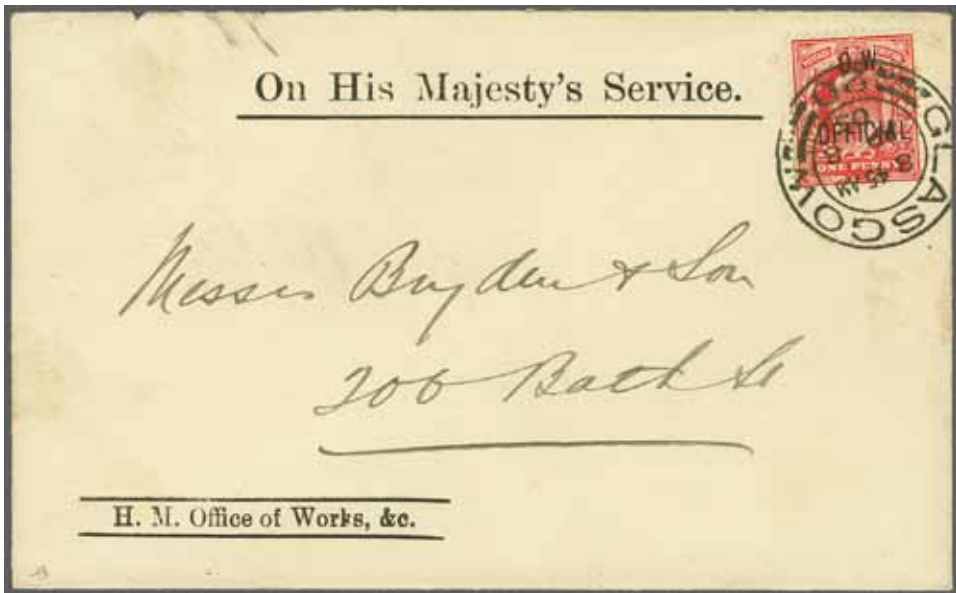 On His Majesty's Service.
O.W.
OFFICIAL
ONE PENNY
GLASGOW
8 45 AM
Messrs Bryden & Son
200 Bath St
H. M. Office of Works, &c.